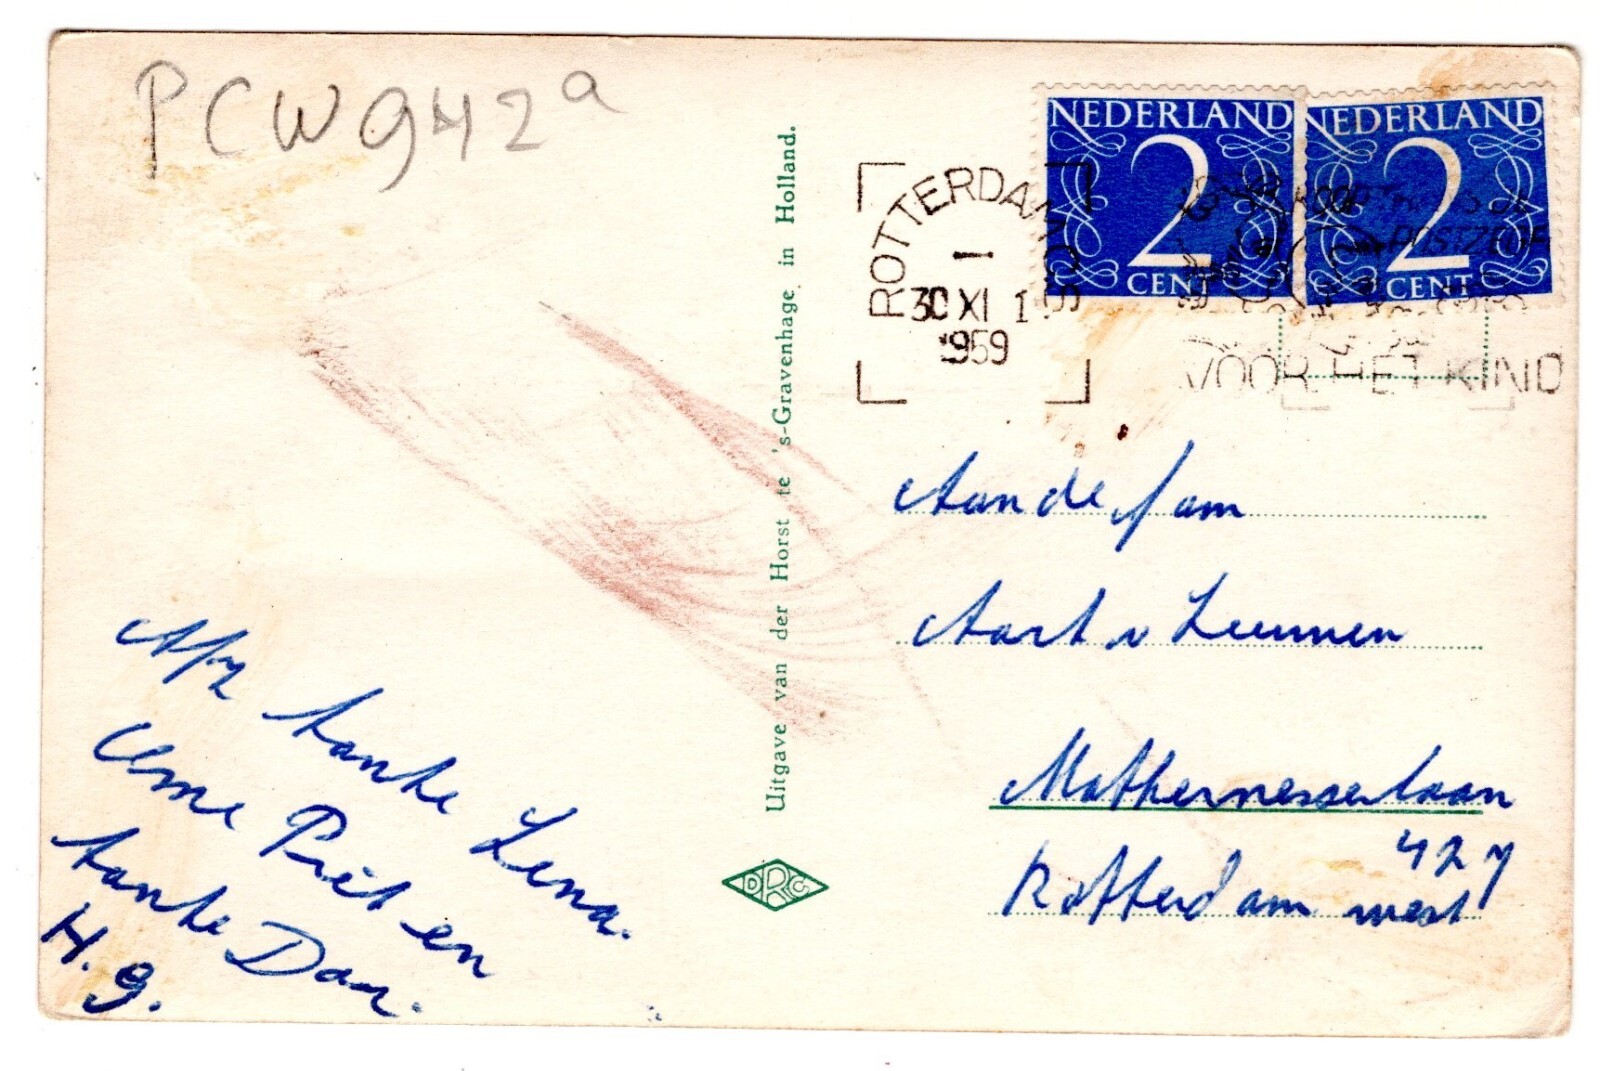 PCW942a
NEDERLAND
2
CENT
NEDERLAND
2
CENT
ROTTERDAM
30 XI 1
1959
POSTZEGE
VOOR HET KIND
Uitgave van der Horst te 's-Gravenhage in Holland.
DRC
Aan de fam
Aart v Leeuwen
Mathernesserlaan
427
Rotterdam west
Afz tante Lena.
Ome Piet en
tante Dar.
H. g.